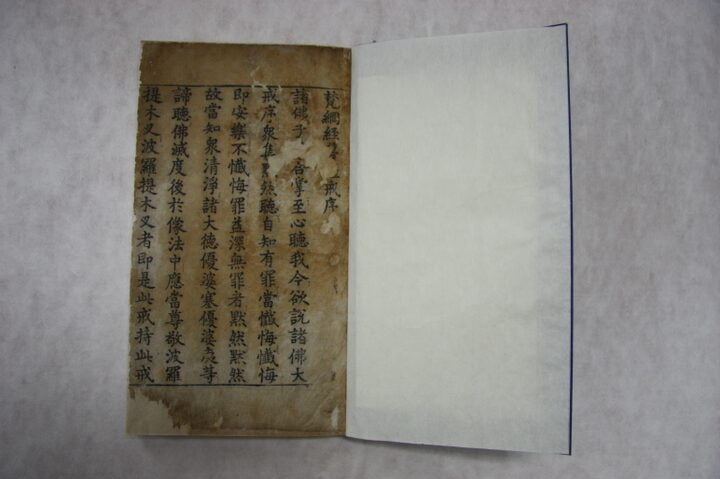 梵網経 戒序
諸佛子 合掌至心聽我今欲說諸佛大
戒序衆集 然聽自知有罪當懺悔懺悔
即安樂不懺悔罪益深無罪者默然默然
故當知衆清淨諸大德優婆塞優婆夷等
諦聽佛滅度後於像法中應當尊敬波羅
提木叉波羅提木叉者即是此戒持此戒